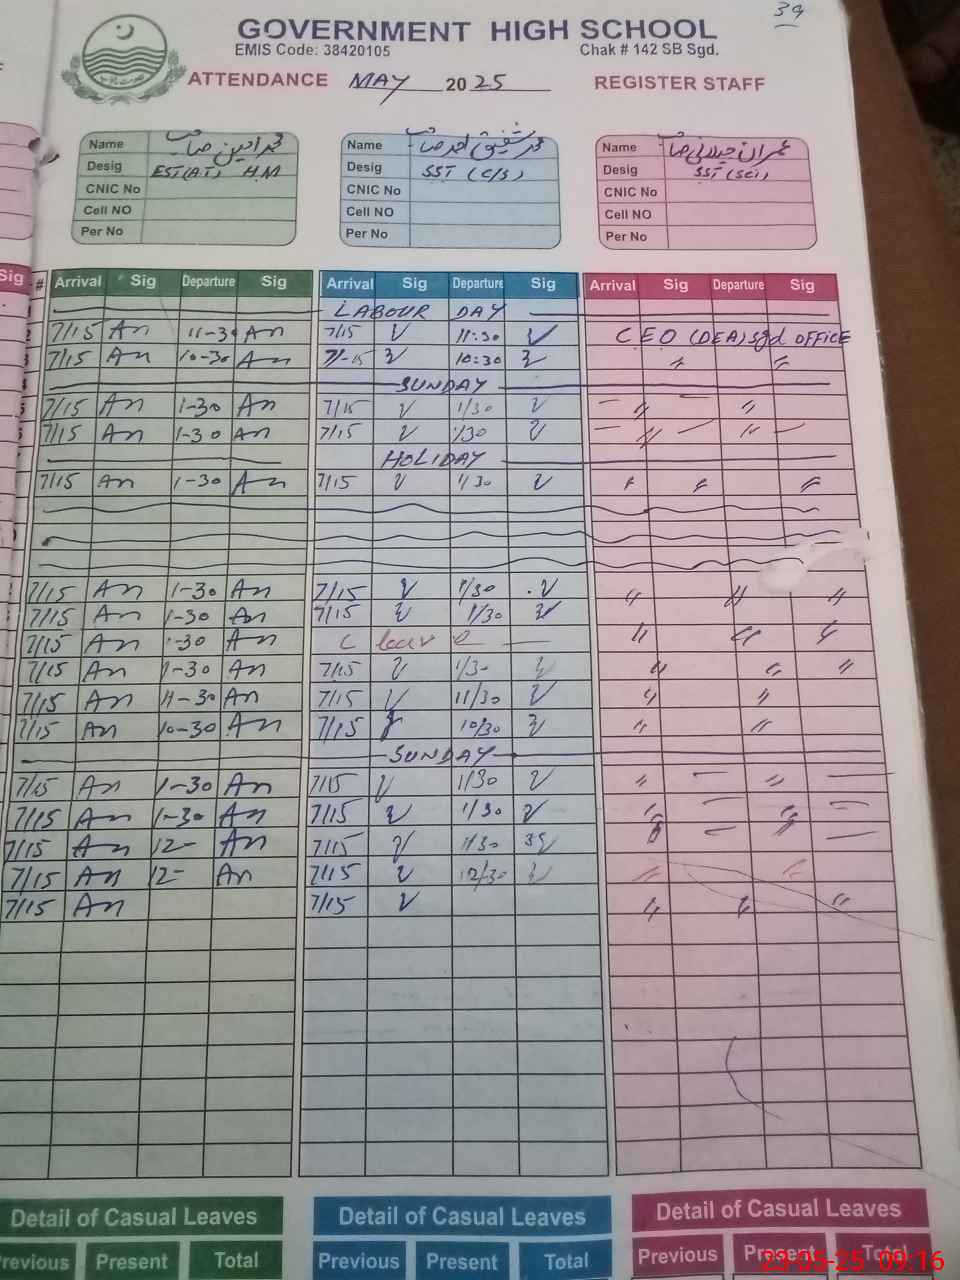 39
GOVERNMENT HIGH SCHOOL
EMIS Code: 38420105 Chak # 142 SB Sgd.
ATTENDANCE MAY 2025 REGISTER STAFF
Name Name Name عمران جیلانی صاحب
Desig EST(AT) H.M Desig SST (C/S) Desig SST (SCI)
CNIC No CNIC No CNIC No
Cell NO Cell NO Cell NO
Per No Per No Per No
Sig # Arrival Sig Departure Sig Arrival Sig Departure Sig Arrival Sig Departure Sig
LABOUR DAY
2 7/15 An 11-30 An 7/15 11:30 C.E.O (DEA) sgd OFFICE
3 7/15 An 10-30 An 7/-15 10:30 〃 〃
4 SUNDAY
5 7/15 An 1-30 An 7/15 1/30 〃 〃
6 7/15 An 1-30 An 7/15 1/30 〃 〃
HOLIDAY
7/15 An 1-30 An 7/15 1/30 〃 〃 〃
7/15 An 1-30 An 7/15 1/30 〃 〃 〃
7/15 An 1-30 An 7/15 1/30
7/15 An 1-30 An C leave 〃 〃 〃
7/15 An 1-30 An 7/15 1/30 〃 〃 〃
7/15 An 11-30 An 7/15 11/30 〃 〃
7/15 An 10-30 An 7/15 10/30 〃 〃
SUNDAY
7/15 An 1-30 An 7/15 1/30 〃 〃
7/15 An 1-30 An 7/15 1/30 〃 〃
7/15 An 12- An 7/15 〃 〃
7/15 An 12- An 7/15 12/30 〃 〃
7/15 An 7/15 〃 〃 〃
Detail of Casual Leaves Detail of Casual Leaves Detail of Casual Leaves
Previous Present Total Previous Present Total Previous Present Total
23-05-25 09:16